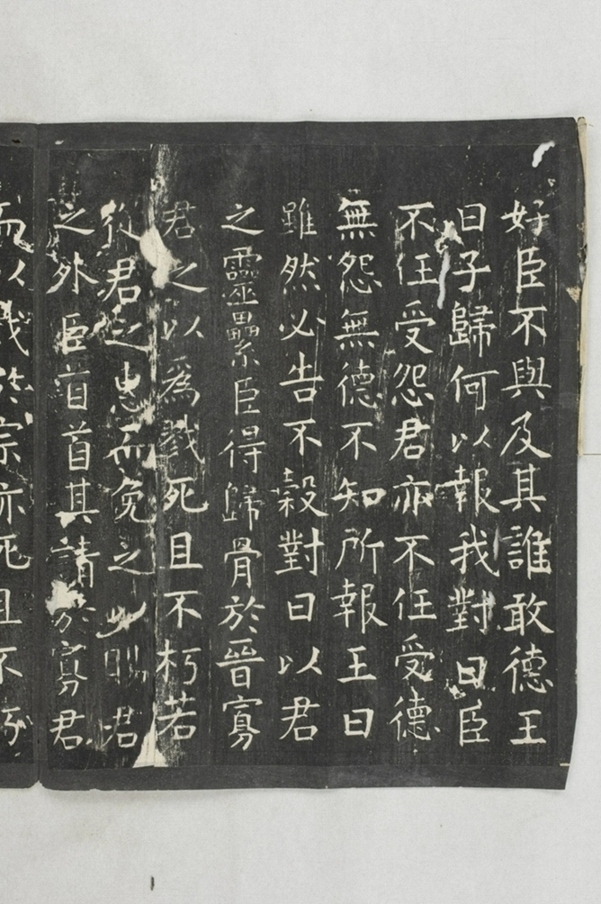 好臣不與及其誰敢德王
曰子歸何以報我對曰臣
不任受怨君亦不任受德
無怨無德不知所報王曰
雖然必告不穀對曰以君
之靈纍臣得歸骨於晉寡
君之以為戮死且不朽若
從君之惠而免之以賜君
之外臣首首其請於寡君
而以戮於宗亦死且不朽